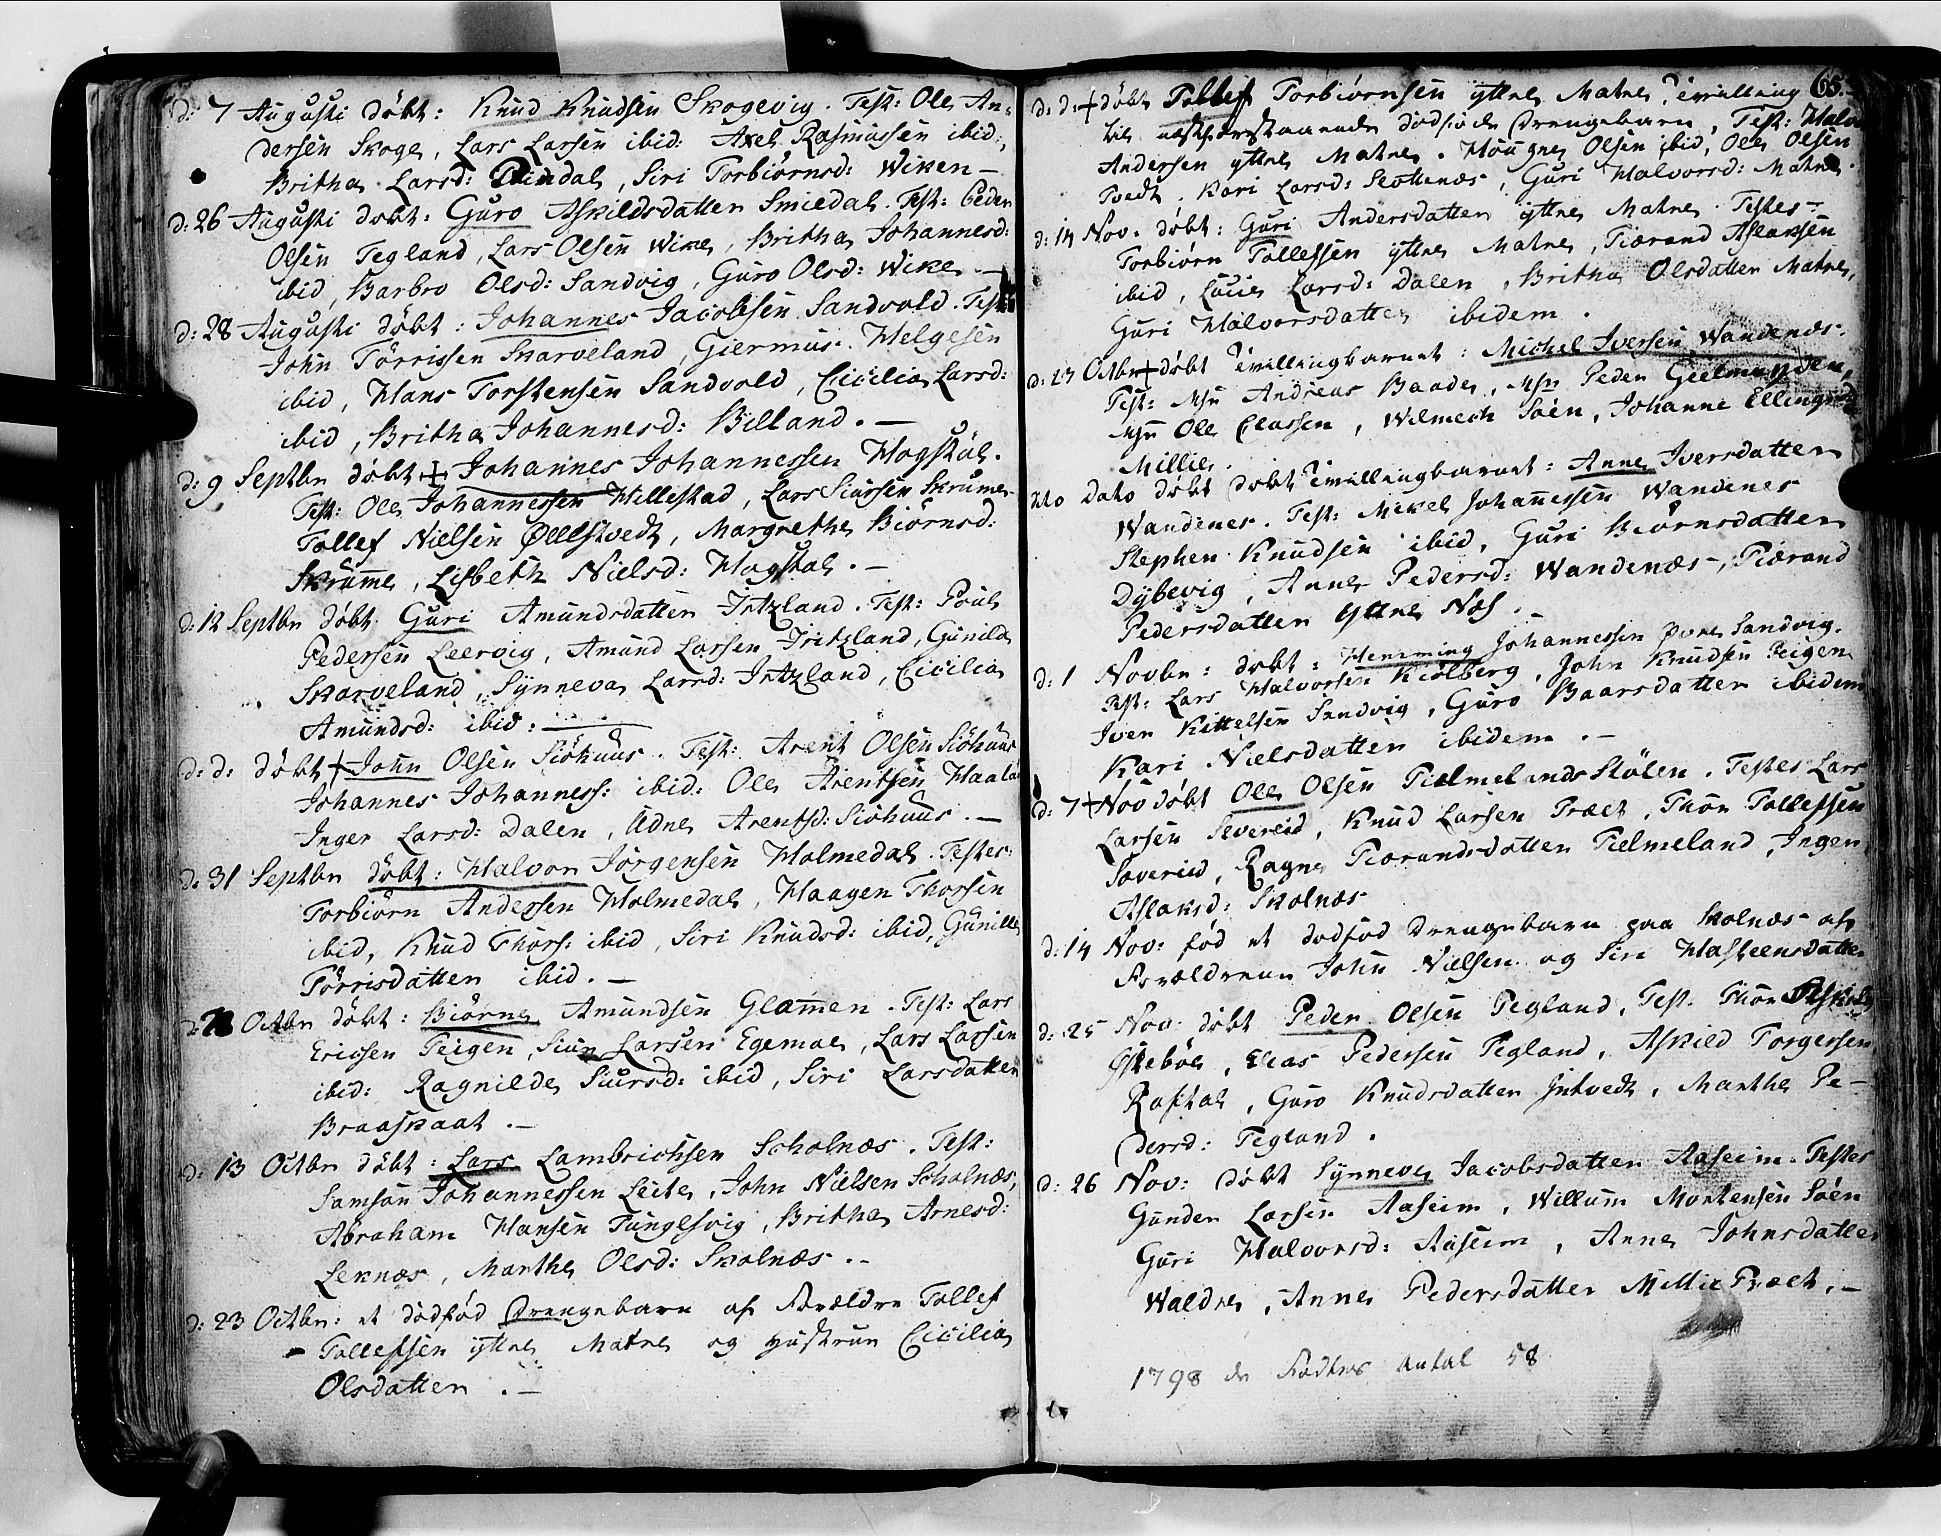 d: 7 Augusti døbt: Knud Knudsen Skogevig. Test: Ole An-
dersen Skoge, Lars Larsen ibid: Axel Rasmussen ibid:,
Britha Larsd: Rindal, Siri Torbiörnsd: Wiken –
d: 26 Augusti døbt: Guro Askildsdatter Smiedal. Test: Peder
Olsen Tegland, Lars Olsen Wike, Britha Johannesd:
ibid, Barbro Olsd: Sandvig, Guro Olsd: Wike. –
d: 28 Augusti døbt: Johannes Jacobsen Sandvold. Test:
John Törrissen Skarveland, Giermun Helgesen
ibid, Hans Torstensen Sandvold, Cicilia Larsd:
ibid, Britha Johannesd: Billand. –
d: 9 Septbr døbt + Johannes Johannessen Hogstøl.
Test: Ole Johannessen Hillestad, Lars Siursen Skrume
Tollef Nielsen Øllstvedt, Margrethe Biörnsd:
Skrumme, Lisbeth Nielsd: Hogstøl. –
d: 12 Septbr døbt Guri Amundsdatter Irtzland. Test: Poul
Pedersen Leervig, Amund Larsen Irtzland, Gunilde
Skarveland, Synneva Larsd: Irtzland, Cicilia
Amundsd: ibid: –
d: d: døbt + John Olsen Siöhuus. Test: Arent Olsen Siöhuus
Johannes Johanness: ibid: Ole Arentsen Haaland
Inger Larsd: Dalen, Udne Arentsd: Siöhuus. –
d: 31 Septbr døbt: Halvor Jörgensen Holmedal. Testes:
Torbiörn Andersen Holmedal, Haagen Thorsen
ibid, Knud Thors: ibid, Siri Knudsd: ibid, Gunille
Törrisdatter ibid. –
Octbr døbt: Biörne Amundsen Glammen. Test: Lars
Ericsen Teigen, Siur Larsen Egemoe, Lars Larsen
ibid: Ragnilde Siursd: ibid, Siri Larsdatter
Braaskaat. –
d: 13 Octbr døbt: Lars Lambrichsen Scholnæs. Test:
Samson Johannessen Leite, John Nielsen Scholnæs,
Abraham Hansen Tungesvig, Britha Arnesd:
Leknæs, Marthe Olsd: Skolnæs. –
d: 23 Octbr: et dödfød Drengebarn af Forældre Tollef
– Tollefsen yttre Matre og Hustrue Cicilia
Olsdatter. –
65.
d: d: + døbt Tollef Torbiörnsen yttre Matre, Tvilling
til næstforestaaende dödfødde Drengebarn, Test: Halvor
Andersen yttre Matre. Mougne Olsen ibid, Ole Olsen
Tvedt, Kari Larsd: Slottenæs, Guri Halvorsd: Matre.
d: 14 Nov. døbt: Guri Andersdatter yttre Matre. Testes –
Torbiörn Tollefsen yttre Matre, Tiærand Aslaksen
ibid, Lucie Larsd: Dalen, Britha Olsdatter Matre,
Guri Halvorsdatter ibidem.
d: 23 Octbr + døbt Tvillingbarnet: Michel Iversen Wandenæs.
Test: Msr Andreas Baade, Msr Peder Gielmuyden,
Msr Ole Classen, Wilmech Söen, Johanne Ellingsd
Millie.
dito Dato døbt døbt Tvillingbarnet: Anne Iversdatter
Wandenes. Test: Mikel Johannessen Wandenes
Stephen Knudsen ibid, Guri Biörnsdatter
Dybevig, Anne Pedersd: Wandenæs –, Tiærand
Pedersdatter yttre Næs. –
d: 1 Novbr: døbt: Hemming Johannessen Øvre Sandvig.
Test: Lars Halvorsen Kiölberg, John Knudsen Teigen
Iver Kittelsen Sandvig, Guro Baarsdatter ibidem
Kari Nielsdatter ibidem. –
d: 7 + Nov døbt Ole Olsen Tielmelands Stølen. Testes Lars
Larsen Sævereid, Knud Larsen Træet, Thor Tollefsen
Sævereid, Ragne Tiærandsdatter Tielmeland, Inger
Aslaksd: Skolnæs
d: 14 Nov: fød et dødfød Drengebarn paa Skolnæs af
Forældrene John Nielsen og Siri Hasteensdatter
d: 25 Nov: døbt Peder Olsen Tegland, Test. Thor
Østebøe, Elias Pedersen Tegland, Askild Torgersen
Røstøl, Guro Knudsdatter Jutvedt, Marthe Pe-
dersd: Tegland.
d: 26 Nov: døbt Synneve Jacobsdatter Aaseim. Testes
Gunder Larsen Aaseim, Willum Mortensen Söen
Guri Halvorsd: Aaseim, Anne Johnsdatter
Waldre, Anne Pedersdatter Millie Træet. –
1798 de Fødtes Antal 58